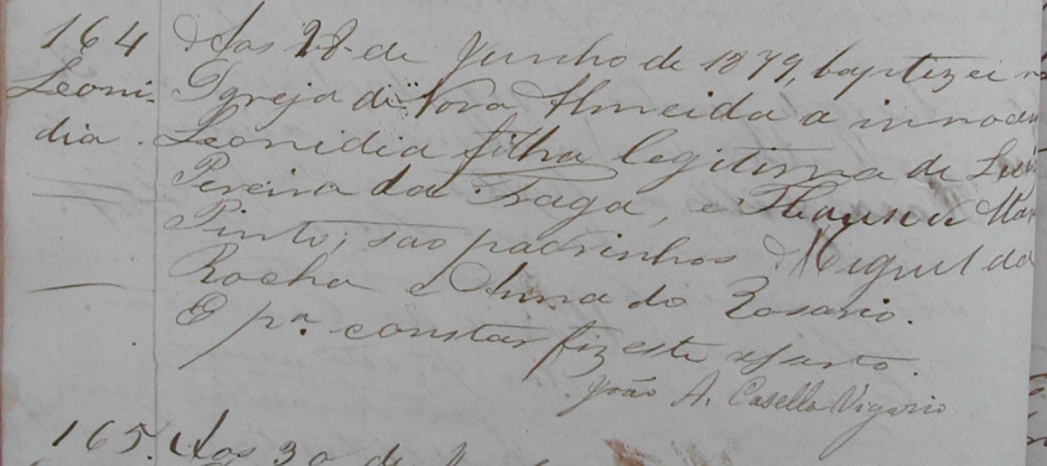 164
Leoni-
dia.
Aos 28 de Junho de 1879, baptizei na
Igreja de Nova Almeida a innocen
Leonidia filha legitima de Luis
Pereira da Fraga, e
Pinto; são padrinhos Miguel da
Rocha e Anna do Rosario.
E pª constar fiz este assento.
João A. Casella Vigario
165. Aos 30 de